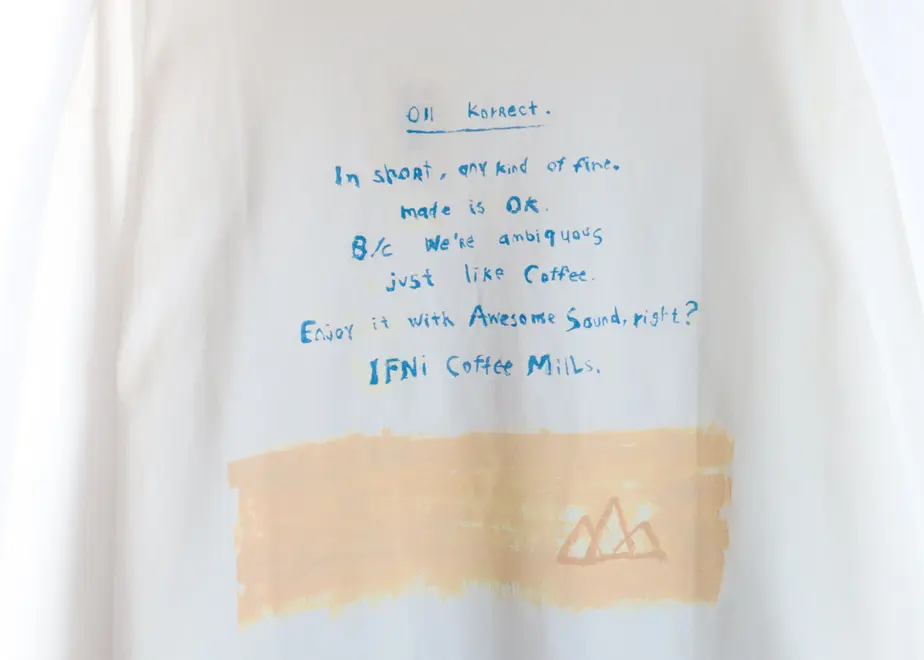 Oll Korrect.
In short, any kind of fine.
made is OK.
B/c We're ambiquous
just like Coffee.
Enjoy it with Awesome Sound, right?
IFNi Coffee Mills.